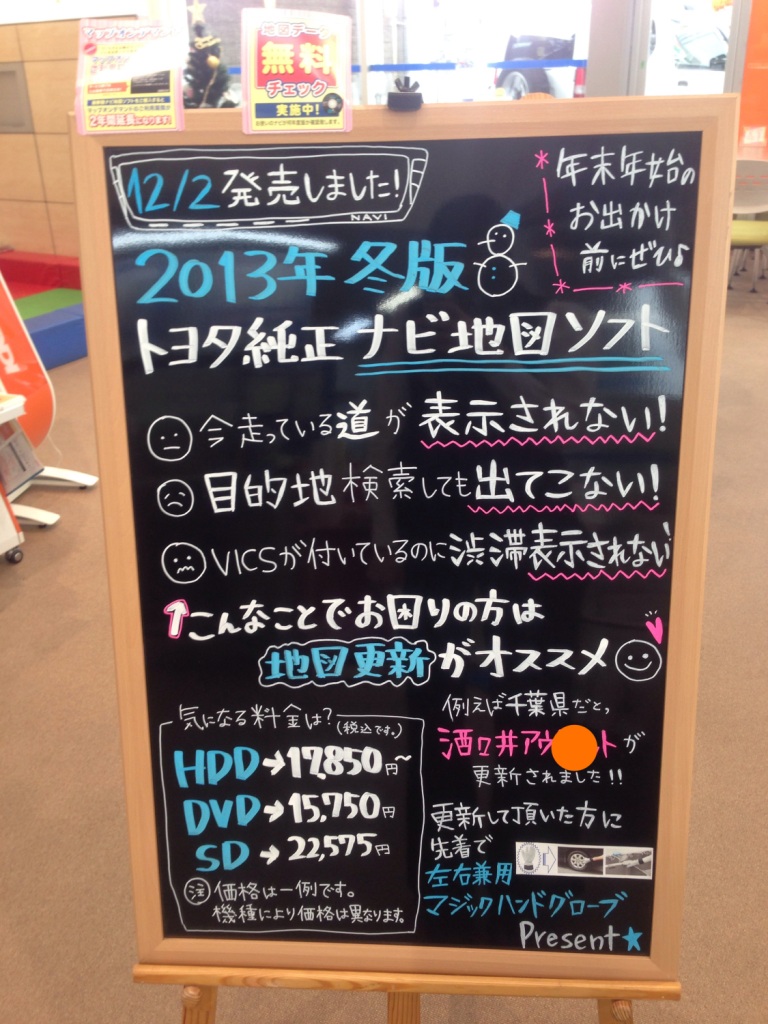 地図データ
無料
チェック
実施中!
2年間延長になります!
12/2 発売しました!
NAVI
年末年始の
お出かけ
前にぜひ♪
2013年 冬版
トヨタ純正 ナビ地図ソフト
今走っている道が 表示されない!
目的地検索しても出てこない!
VICSが付いているのに渋滞表示されない
↑こんなことでお困りの方は
地図更新がオススメ
気になる料金は?(税込です。)
HDD→17,850円~
DVD→15,750円
SD→22,575円
注 価格は一例です。
機種により価格は異なります。
例えば千葉県だと、
酒々井アウ
トが
更新されました!!
更新して頂いた方に
先着で
左右兼用
マジックハンドグローブ
Present★